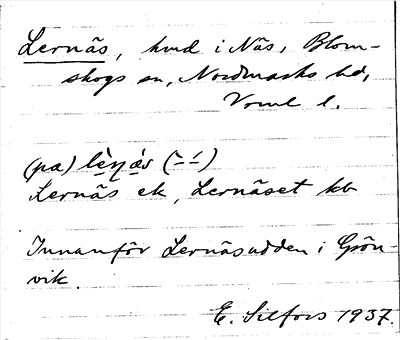 Lernäs, hmd i Näs, Blom-
skogs sn, Nordmarks hd,
Värml l.
(pa)
Lernäs ek, Lernäset kb
Innanför Lernäsudden i Grön-
vik.
E. Silfors 1937.